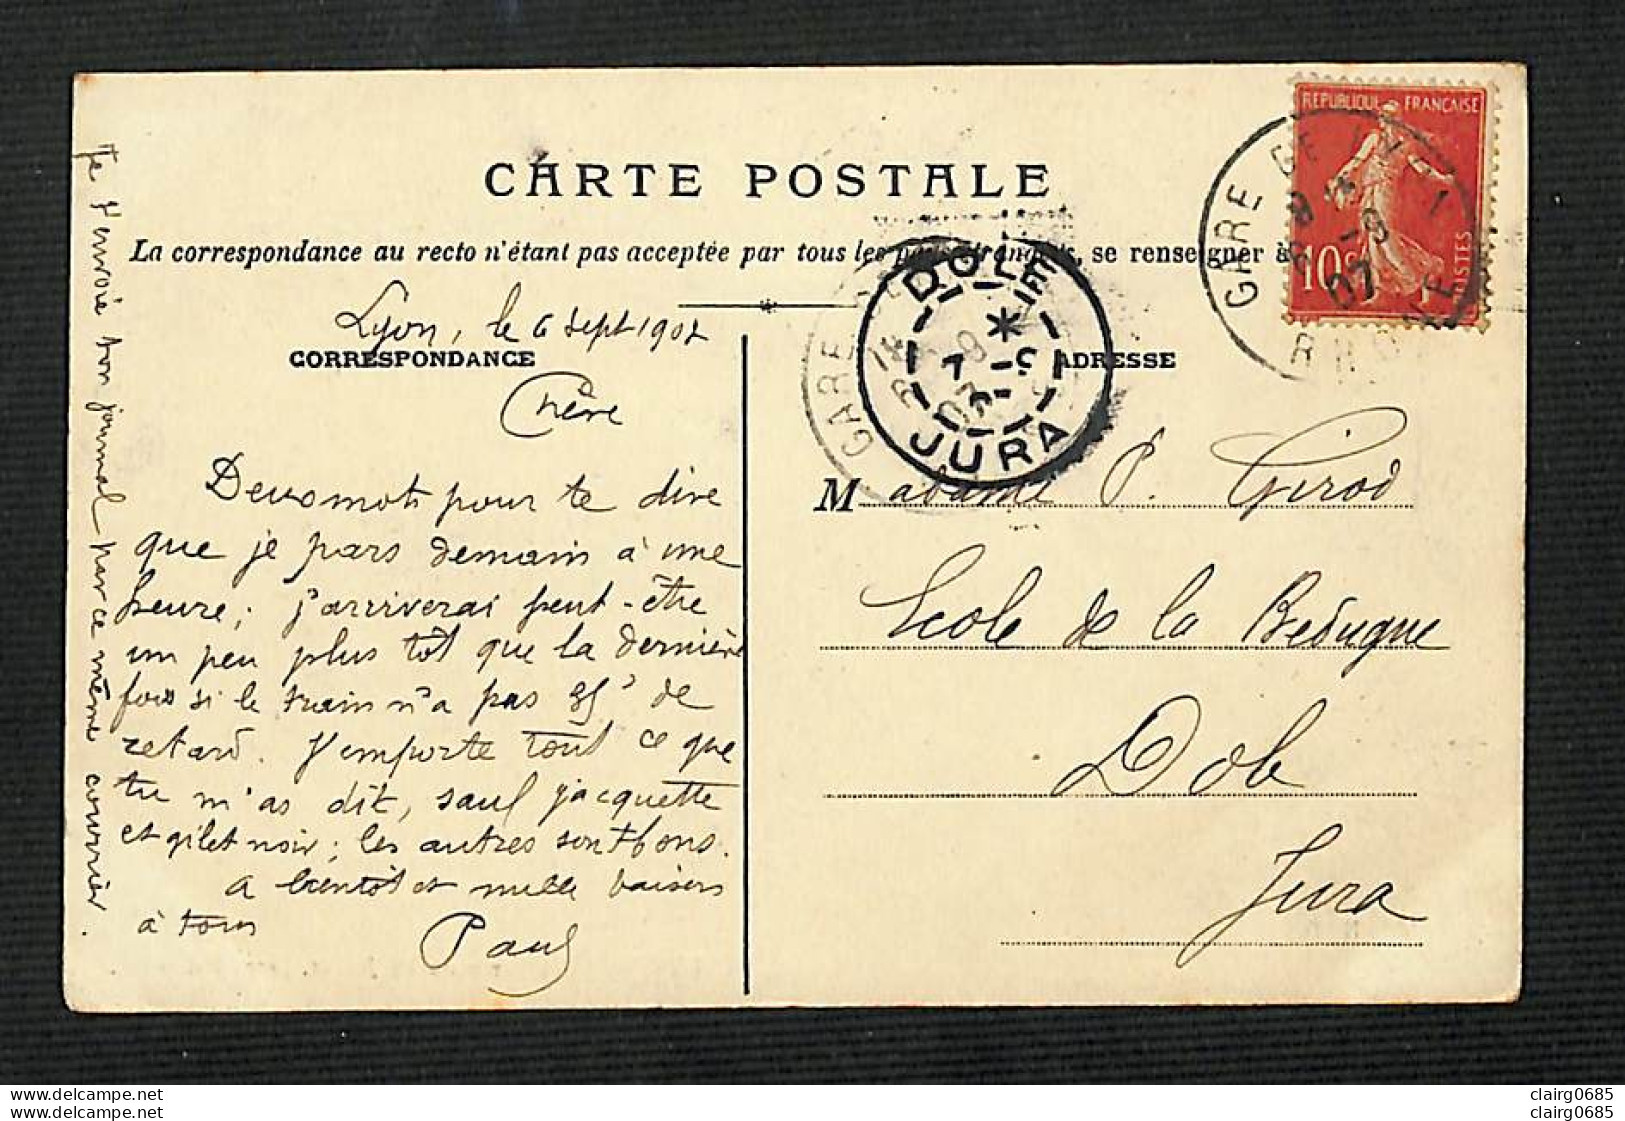 CARTE POSTALE
La correspondance au recto n'étant pas acceptée par tous les pays étrangers, se renseigner à
REPUBLIQUE FRANÇAISE
10 c
POSTES
GARE
RHONE
07
DOLE
JURA
GARE
Lyon, le 6 sept 1907
CORRESPONDANCE
ADRESSE
Chère
Deux mots pour te dire
que je pars demain à une
heure; j'arriverai peut-être
un peu plus tôt que la dernière
fois si le train n'a pas de
retard. J'emporte tout ce que
tu m'as dit, sauf jacquette
et gilet noir; les autres sont bons.
A bientôt et mille baisers
à tous
Paul
Je t'envoie ton journal par ce même courrier.
Madame P. Girod
Ecole de la Bedugue
Dole
Jura
clairg0685
clairg0685
www.delcampe.net
www.delcampe.net